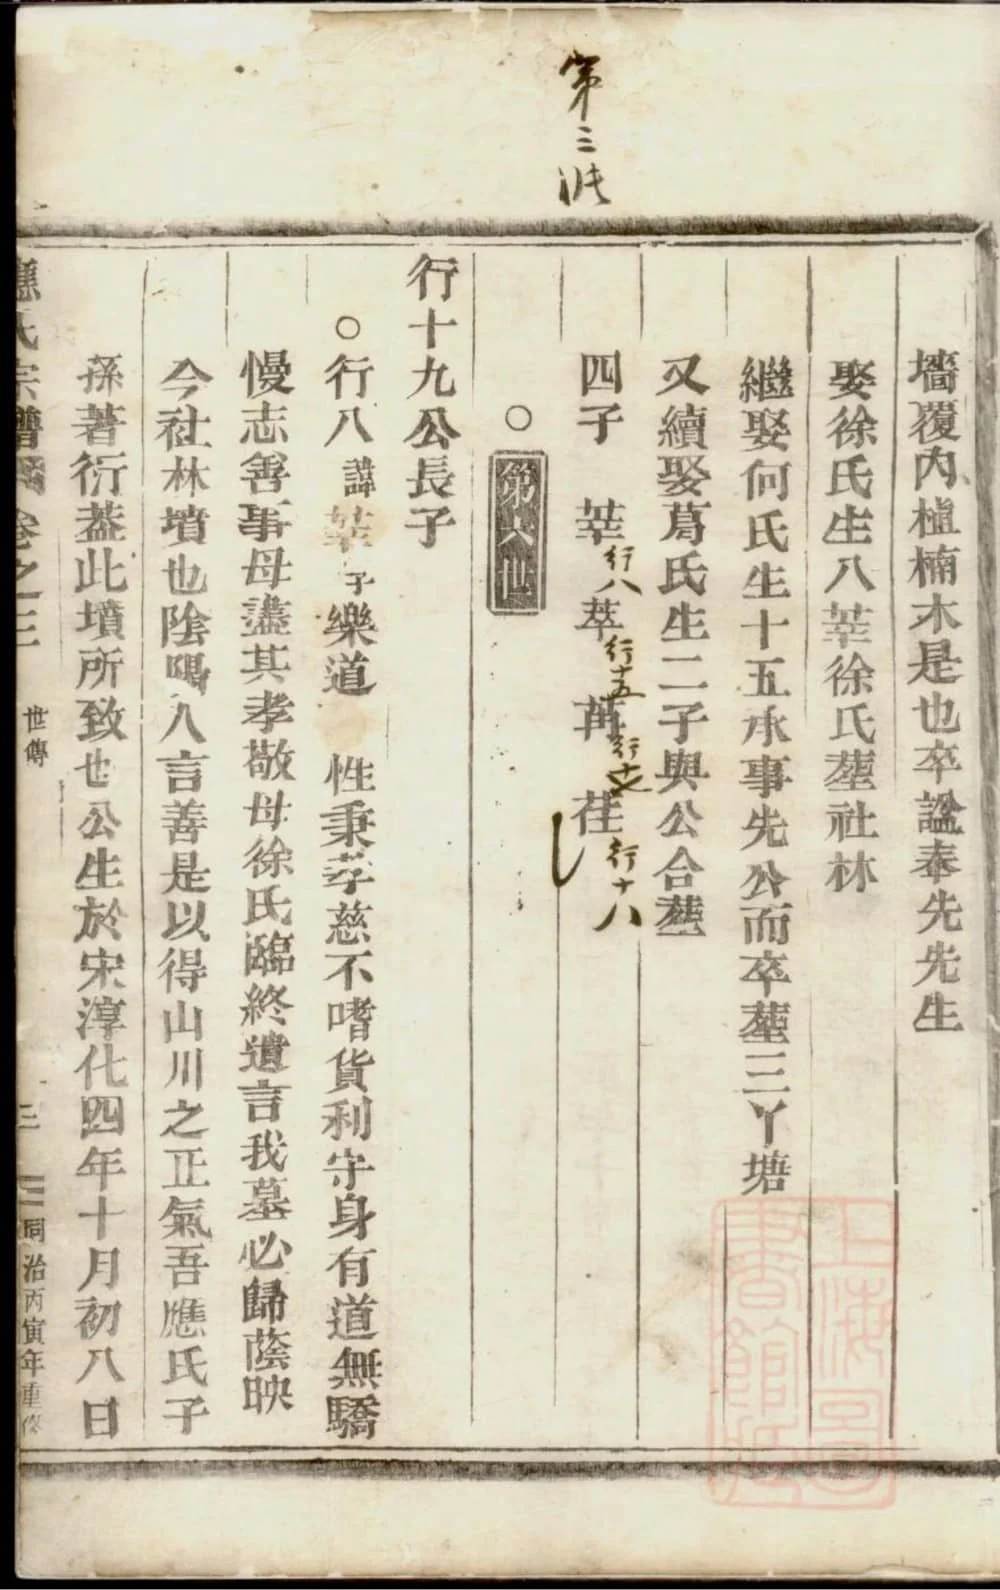 第三
墻覆內植楠木是也卒諡奉先先生
娶徐氏生八莘徐氏塟社林
繼娶何氏生十五承事先公而卒塟三丫塘
又續娶葛氏生二子與公合塟
四子 莘行八 萃行十五 苒行十七 荏行十八
○第六世
行十九公長子
○行八諱莘子樂道 性秉孝慈不嗜貨利守身有道無驕
慢志善事母盡其孝敬母徐氏臨終遺言我墓必歸蔭映
今社林墳也陰陽人言善是以得山川之正氣吾應氏子
孫著衍蓋此墳所致也公生於宋淳化四年十月初八日
應氏宗譜 卷之三 世傳 三 同治丙寅年重修
上海圖書館藏